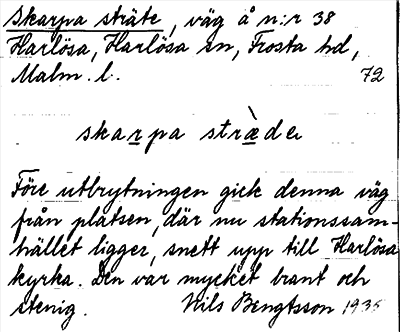 Skarpa sträte, väg å n:r 38
Harlösa, Harlösa sn, Frosta hd,
Malm. l. 72
skarpa strǽde
Före utbrytningen gick denna väg
från platsen, där nu stationssam-
hället ligger, snett upp till Harlösa
kyrka. Den var mycket brant och
stenig. Nils Bengtsson 1935